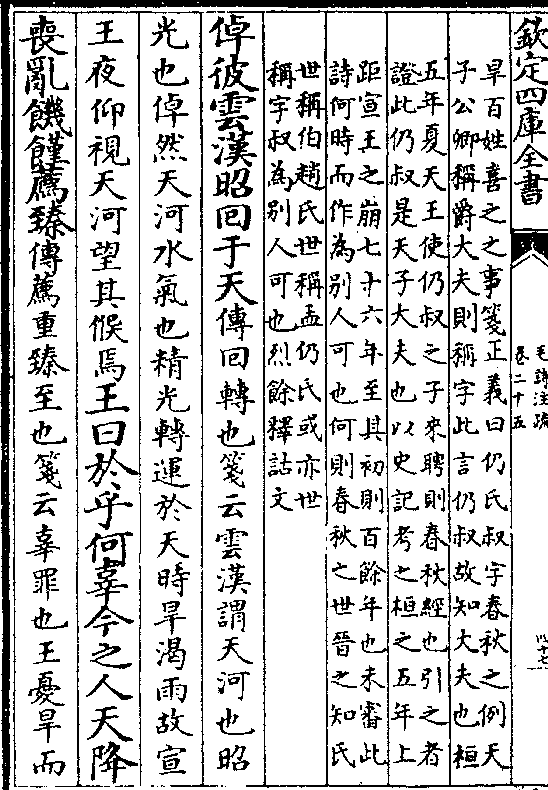 欽定四庫全書
毛詩注疏
卷二十五
旱百姓喜之之事箋正義曰仍氏叔字春秋之例天
子公卿稱爵大夫則稱字此言仍叔故知大夫也桓
五年夏天王使仍叔之子來聘則春秋經也引之者
證此仍叔是天子大夫也以史記考之桓之五年上
距宣王之崩七十六年至其初則百餘年也未審此
詩何時而作為別人可也何則春秋之世晉之知氏
世稱伯趙氏世稱孟仍氏或亦世
稱字叔為別人可也烈餘釋詁文
倬彼雲漢昭回于天傳回轉也箋云雲漢謂天河也昭
光也倬然天河水氣也精光轉運於天時旱渴雨故宣
王夜仰視天河望其候焉王曰於乎何辜今之人天降
喪亂饑饉薦臻傳薦重臻至也箋云辜罪也王憂旱而